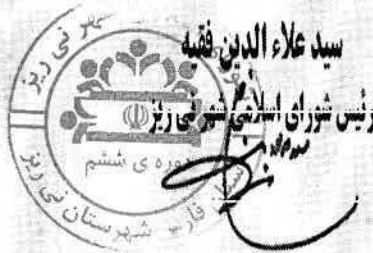 سید علاء الدین فقیه
رئیس شورای اسلامی شهر نی ریز
شهر نی ریز
دوره ی ششم
استان فارس شهرستان نی ریز